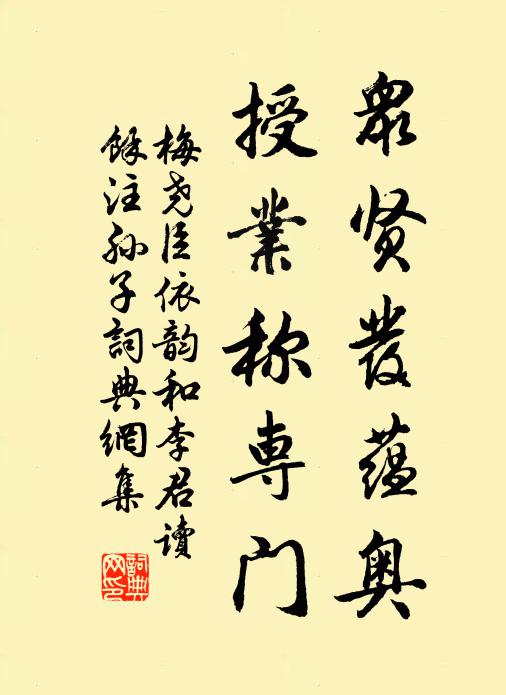 眾贤發蕴奥
授業称専门
梅尧臣依韵和李君读
馀注孙子詞典網集
詞典网印